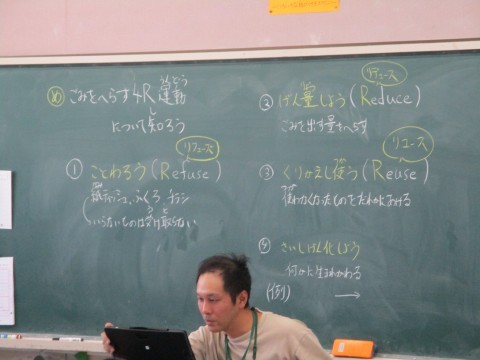 め ごみをへらす4R運動
うんどう
について知ろう
① ことわろう(Refuse)
リフューズ
紙ティッシュ、ふくろ、チラシ
いらないものは受け取らない
② げん量しよう(Reduce)
リデュース
ごみを出す量をへらす
③ くりかえし使う(Reuse)
リユース
使わなくなったものをだれかにあげる
④ さいしげん化しよう
何かに生まれかわる
(例) →